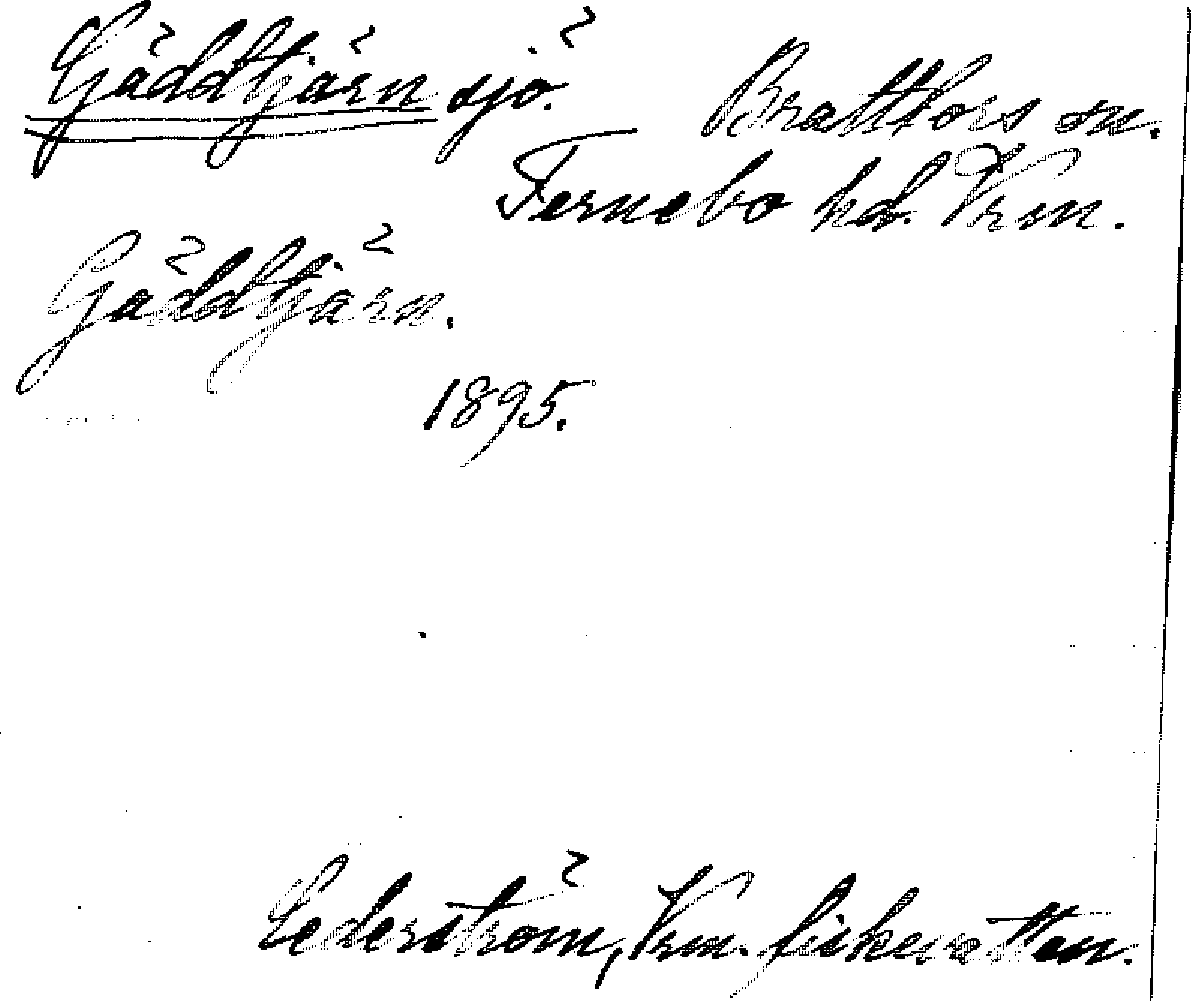 Gäddtjärn sjö. Brattfors sn.
Fernebo hd. Vrm.
Gäddtjärn.
1895.
Cederström, Vrm. fiskevatten.